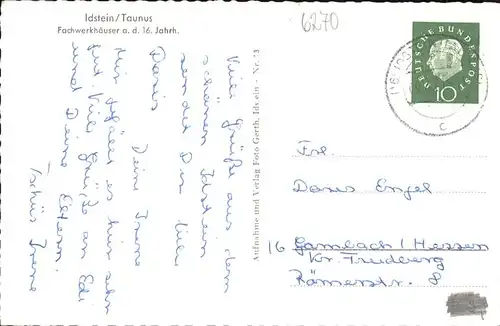 Idstein/Taunus
Fachwerkhäuser a. d. 16. Jahrh.
6270
DEUTSCHE BUNDESPOST
10
c
Viele Grüße aus dem
schönen Idstein
sendet Dir liebe
Doris
Deine Irene
Mir gefällt es hier sehr
gut. Viele Grüße an Edi
und Deine Eltern.
Tschüs Irene
Aufnahme und Verlag Foto Gerth, Idstein - Nr. 13
Frl.
Doris Engel
16 Gambach / Hessen
Kr. Friedberg
Römerstr. 8